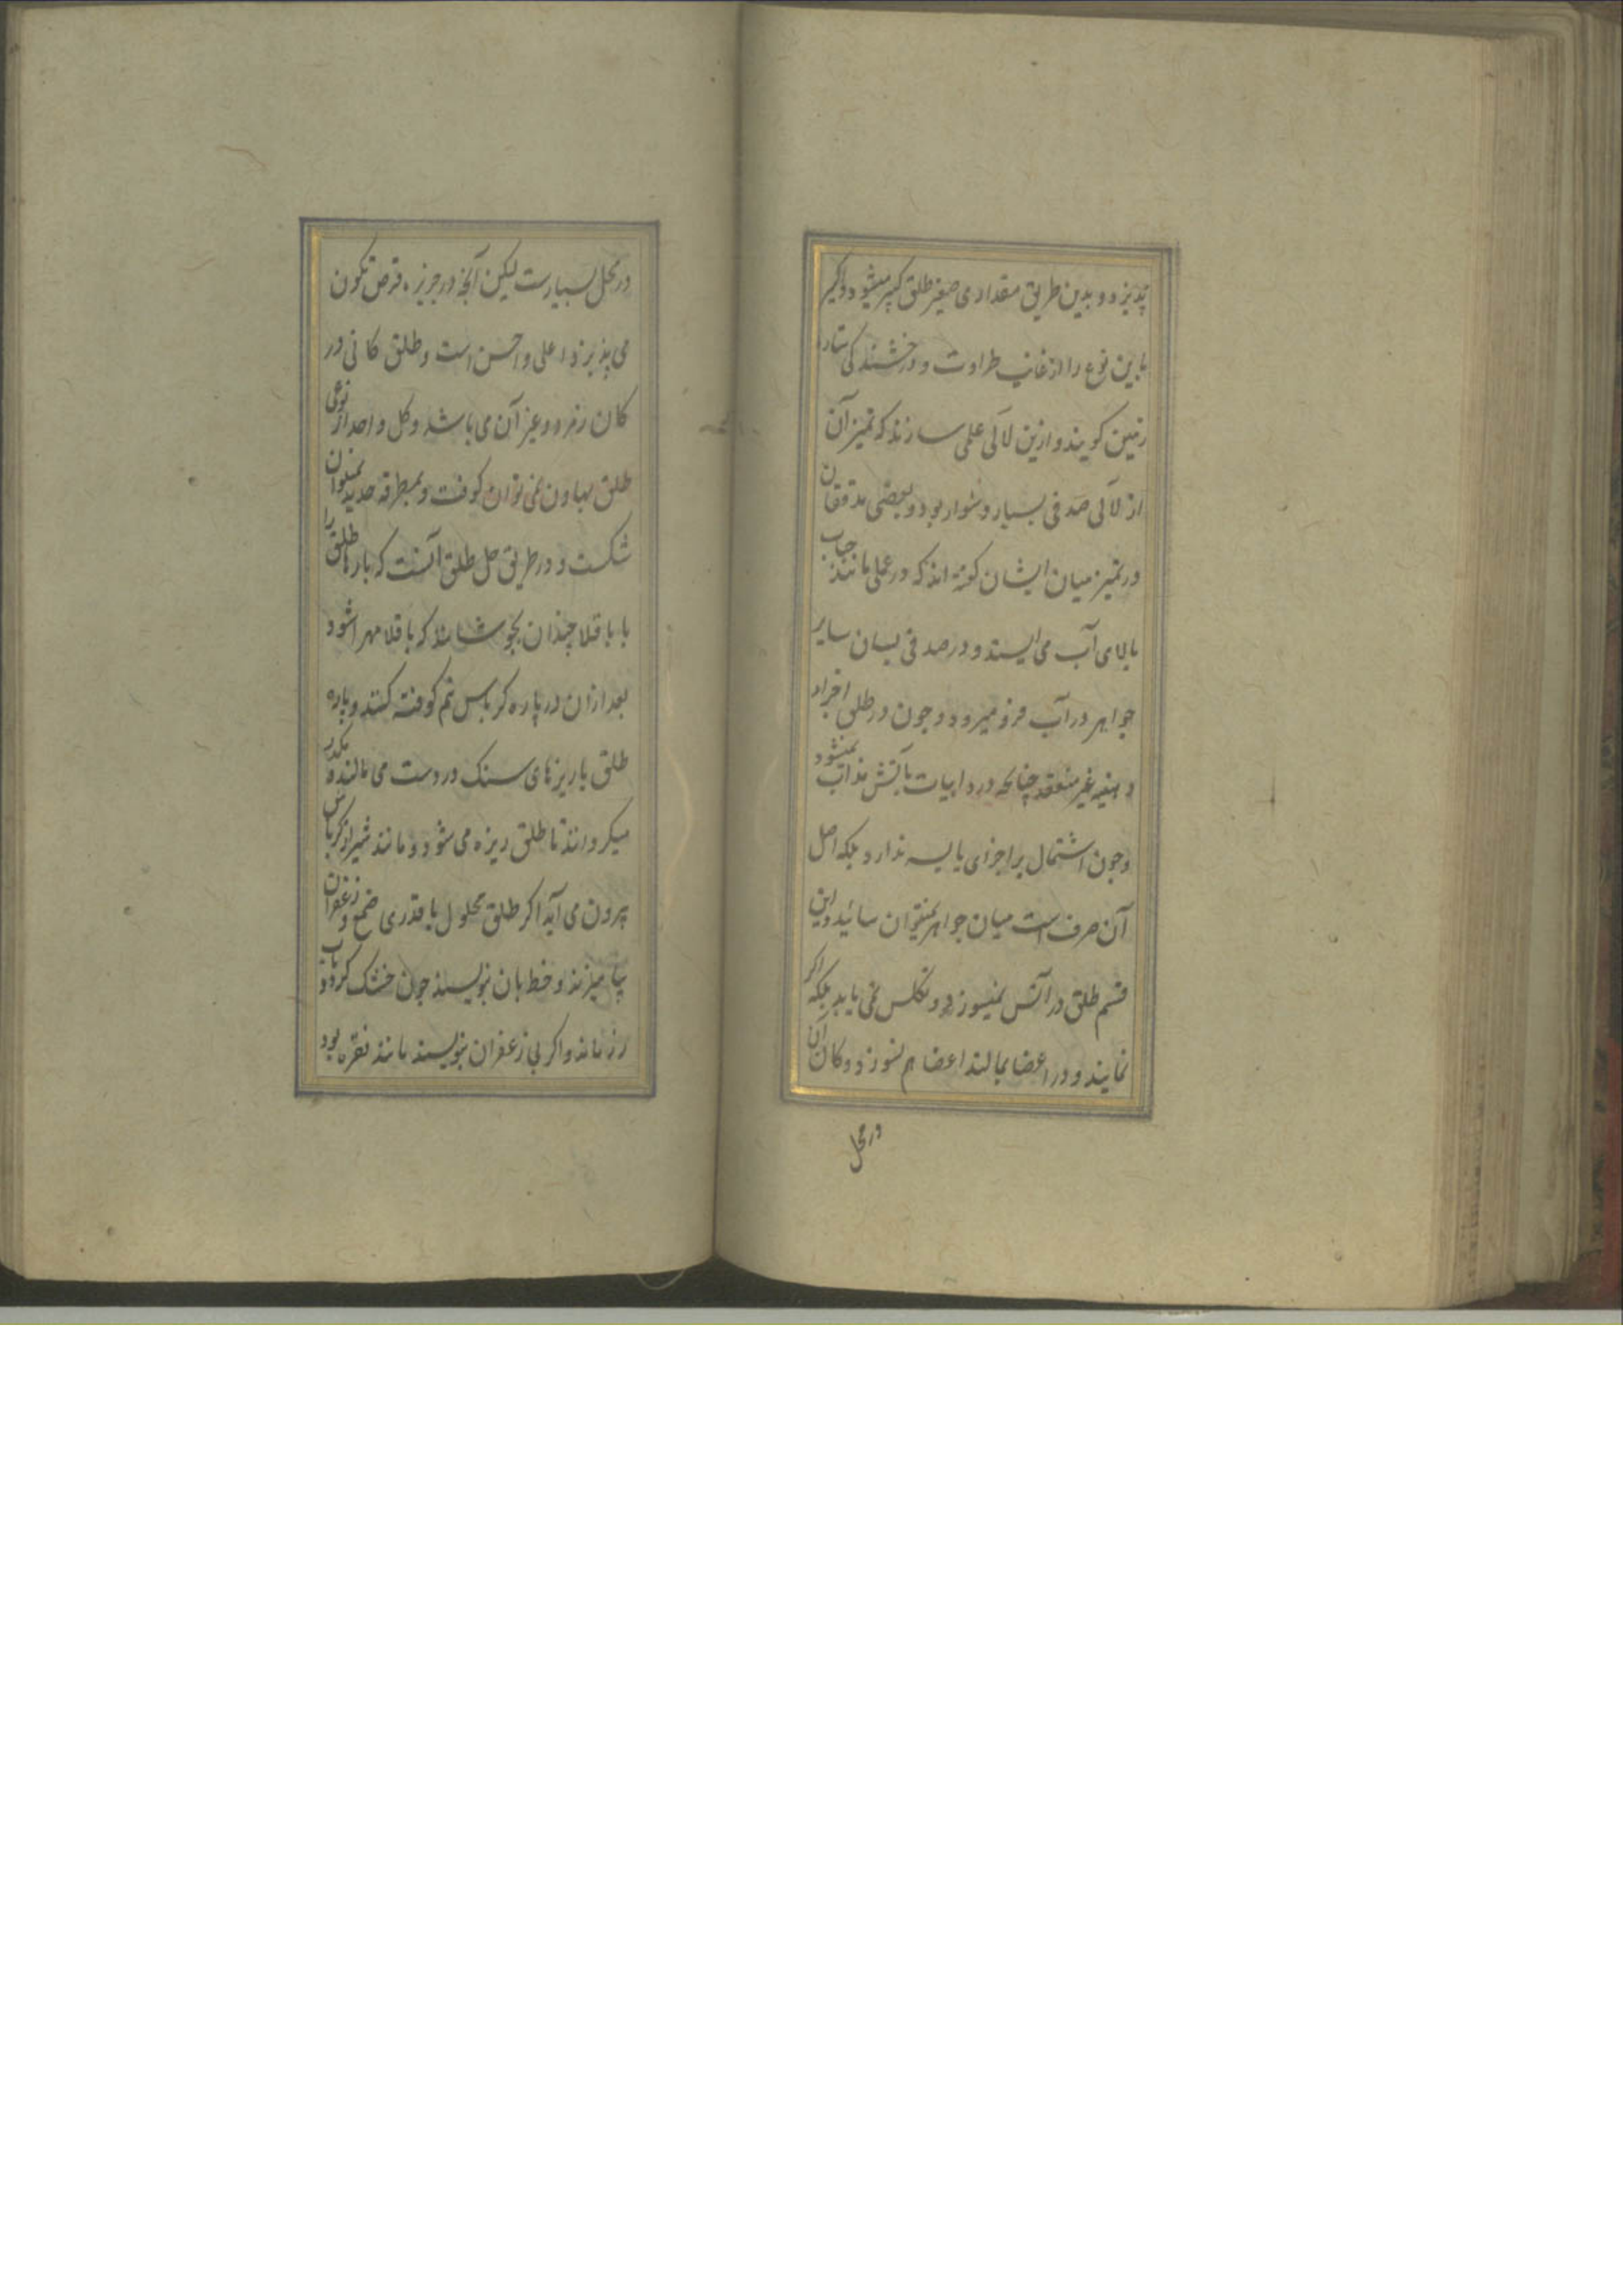 پذیرد و بدین طریق مقداری صغیر طلق کبیر میشود و اکثر
این نوع را از غایت طراوت و درخشندکی ستاره
زمین کویند و ازین لآلی عملی سازند که تمیز آن
از لآلی صدفی بسیار دشوار بود و بعضی مدققان
در تمیز میان ایشان کفته اند که در عملی مانند حباب
بالای آب می ایستد و در صدفی بسان سایر
جواهر در آب فرو میرود و چون در طلق اجزاء
دهنیه غیر منعقد چنانکه در ذابیات بآتش مذاب نمیشود
و چون اشتمال بر اجزای یابسه ندارد بلکه اصل
آن صرف است میان جواهر نمیتوان سائید و این
قسم طلق در آتش نمیسوزد و تکلس نمی یابد بلکه اکر
نمایند و در اعضا بمالند اعضا هم نسوزد و کان آن
در محل
در محل بسیارست لیکن آنچه در جزیره قبرص تکون
می پذیرد اعلی و احسن است و طلق کانی در
کان زمرد و غیر آن می باشد و کل واحد از نوعی
طلق بهاون نمی توان کوفت و بمطرقه حدید نمیتوان
شکست و در طریق حل طلق آنست که بارها طلق را
با باقلا چندان بجوشانند که باقلا مهرا شود
بعد ازان در پاره کرباس نم کوفته کنند و پاره
طلق با ریزهای سنک در دست می مالند و بکدر
میکردانند تا طلق ریزه می شود و مانند شیر از کرباس
بیرون می آید اکر طلق محلول با قدری صمغ و زعفران
بیامیزند و خط بان نویسند چون خشک کردد بآب
زر ماند و اکر بی زعفران نویسند مانند نقره بود